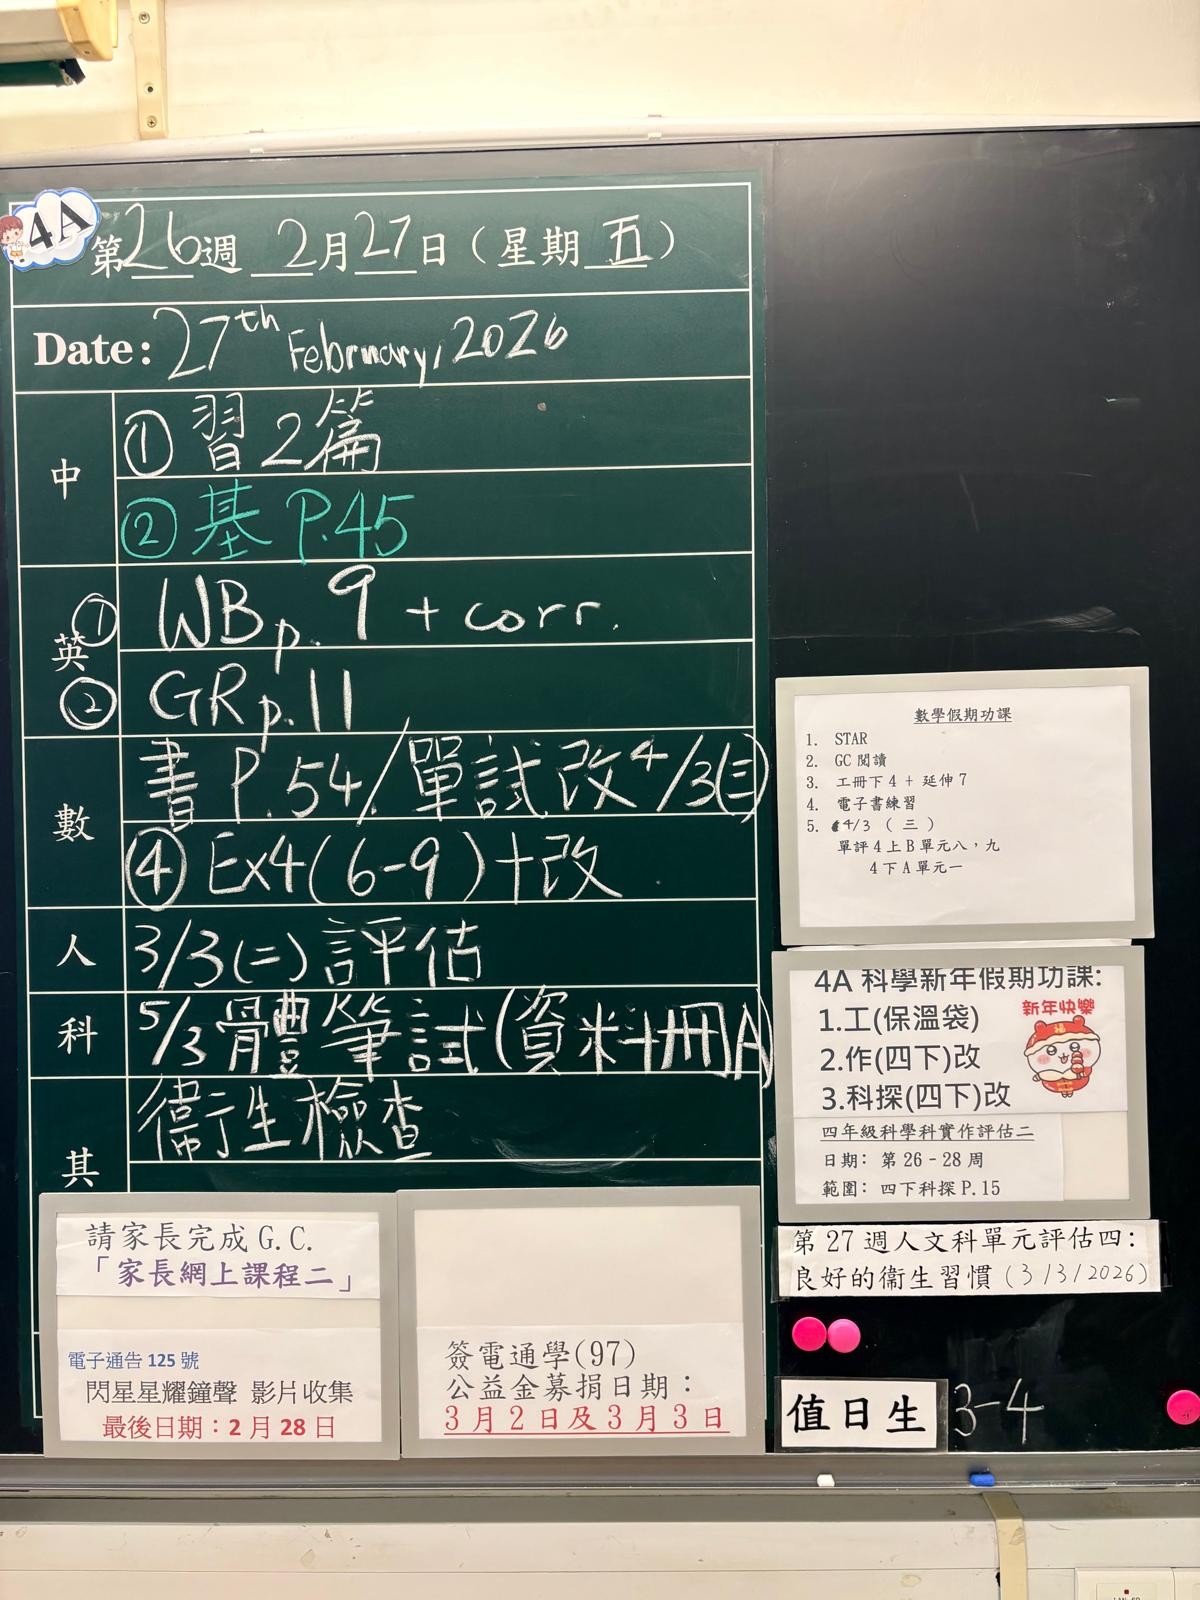 4A
第26週 2月27日(星期五)
Date: 27th February, 2026
中
① 習2篇
② 基 P.45
英
① WB p.9 + corr.
② GR p.11
數
書 P.54/單試改 4/3(三)
④ Ex4(6-9)+改
人
3/3(二)評估
科
5/3 體筆試(資料冊A)
其
衞生檢查
請家長完成 G.C.
「家長網上課程二」
電子通告 125 號
閃星星耀鐘聲 影片收集
最後日期：2 月 28 日
簽電通學(97)
公益金募捐日期：
3月2日及3月3日
數學假期功課
1. STAR
2. GC 閱讀
3. 工冊下 4 + 延伸 7
4. 電子書練習
5. 4/3 (三)
單評 4 上 B 單元八，九
4 下 A 單元一
4A 科學新年假期功課:
1.工(保溫袋)
2.作(四下)改
3.科探(四下)改
新年快樂
福
四年級科學科實作評估二
日期: 第 26 - 28 周
範圍: 四下科探 P.15
第 27 週人文科單元評估四:
良好的衞生習慣 (3/3/2026)
值日生 3-4